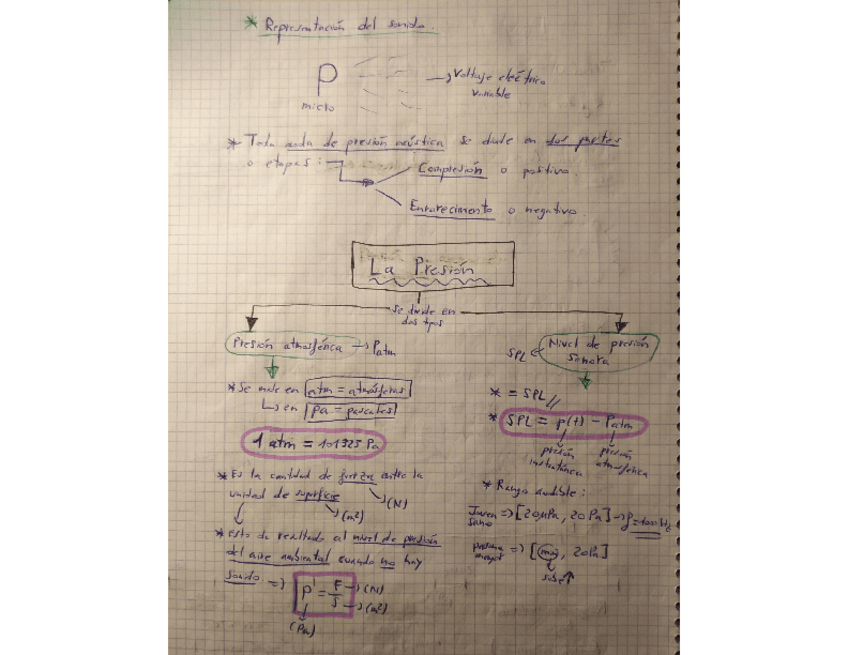 * Representación del sonido.
P → Voltaje eléctrico
micro variable
* Toda onda de presión acústica se divide en dos partes
o etapas:
Compresión o positivo.
Enrarecimiento o negativo.
La Presión
se divide en
dos tipos
Presión atmosférica → Patm
* Se mide en atm = atmósferas
↳ en Pa = pascales
1 atm = 101325 Pa
* Es la cantidad de fuerza entre la
unidad de superficie → (N)
→ (m²)
* Esto da resultado al nivel de presión
del aire ambiental cuando no hay
sonido => P = F → (N)
S → (m²)
(Pa)
SPL ← Nivel de presión
sonora
* = SPL //
* SPL = p(t) - Patm
presión presión
instantánea atmosférica
* Rango audible:
Joven => [20µPa, 20Pa] → f=1000Hz
sano
persona => [ , 20Pa]
mayor
sube ↑